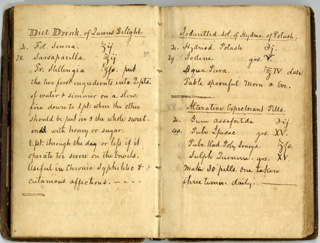 Diet Drink, of Lewis Delight.
Fol. Senna. ʒij
Sarsaparilla. ℥ij
Fr. Stillengea ℥fs. put
the two first ingredients into 2 pts.
of water & simmer on a slow
fire down to 1 pt. when the other
should be put in & the whole sweet-
end with honey or sugar.
through the day or less if it
operate too severe on the bowels.
Useful in Chronic Syphilitec &
cutaneous affections.
Ioduretted sol. of Hydrio. of Potash.
Hydriod. Potash
Iodine grs. V.
Aqua Pura dose
Table spoonful Morn & Eve.
Alterative Expectorant Pills.
Gum assafœtida
Pulv. Ipecac grs. XV.
Pulv. Rad. Poly. Senega
Sulph. Quinini grs. XV.
Make 30 pills. one taken
three times daily.